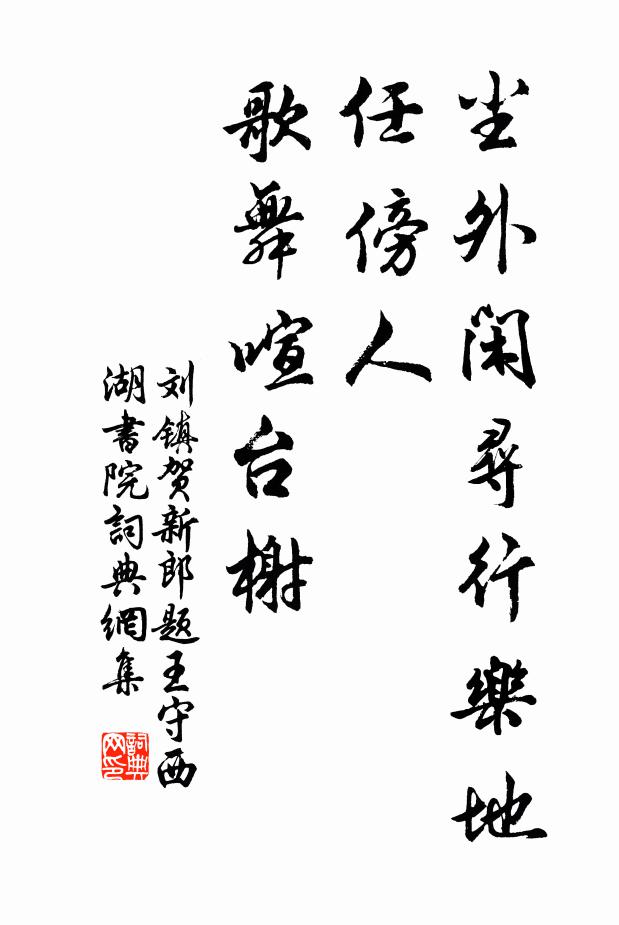 尘外闲尋行樂地
任傍人
歌舞喧台榭
刘镇贺新郎题王守西
湖書院詞典網集
詞典
网印